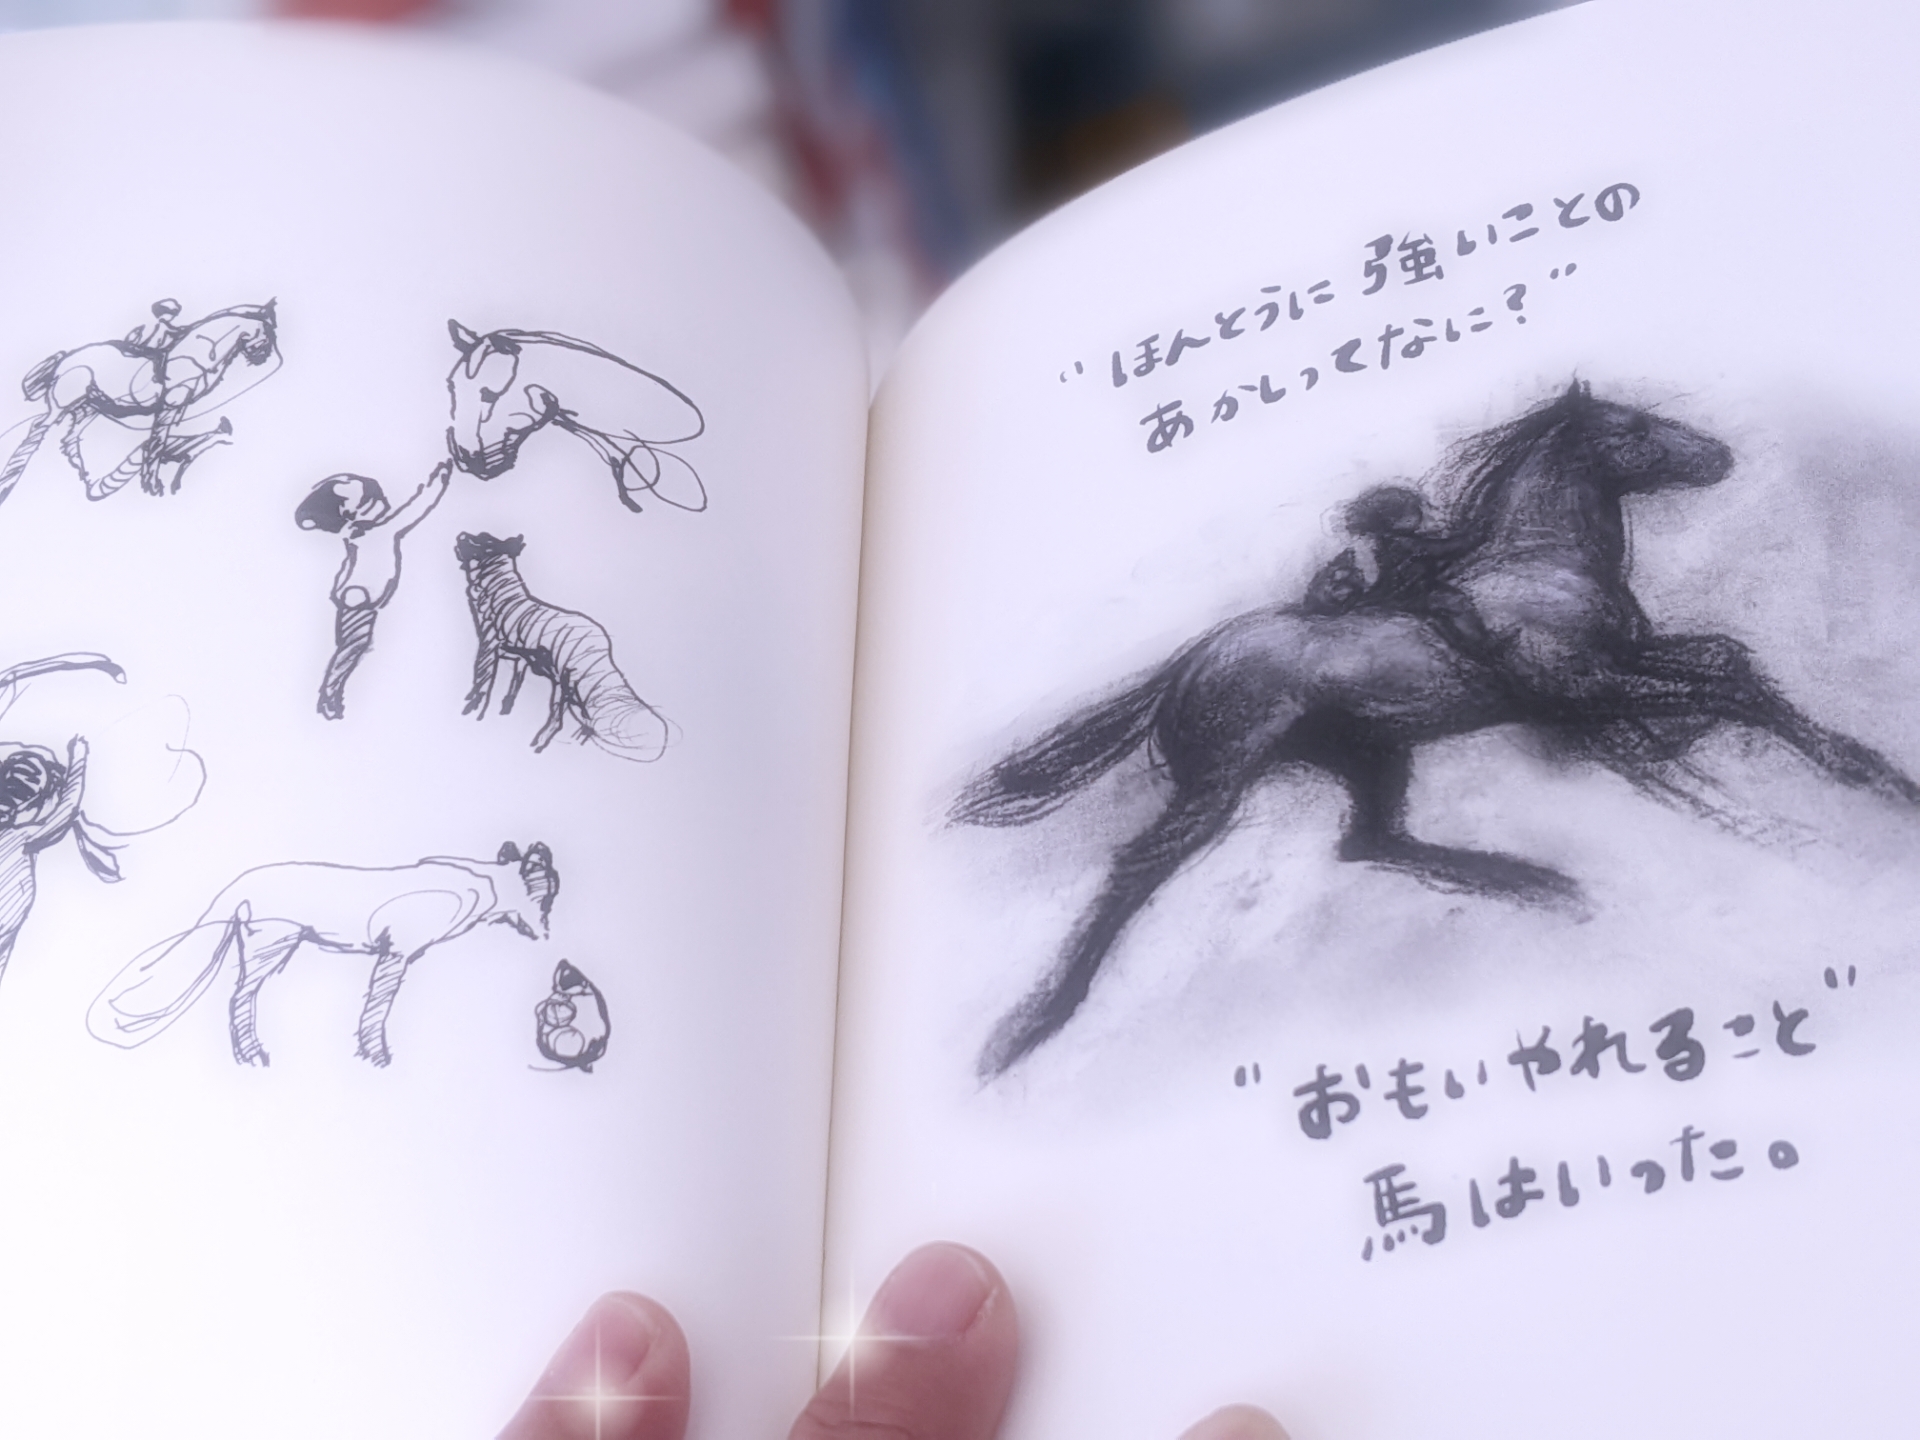 “ほんとうに強いことの
あかしってなに?”
“おもいやれること”
馬はいった。